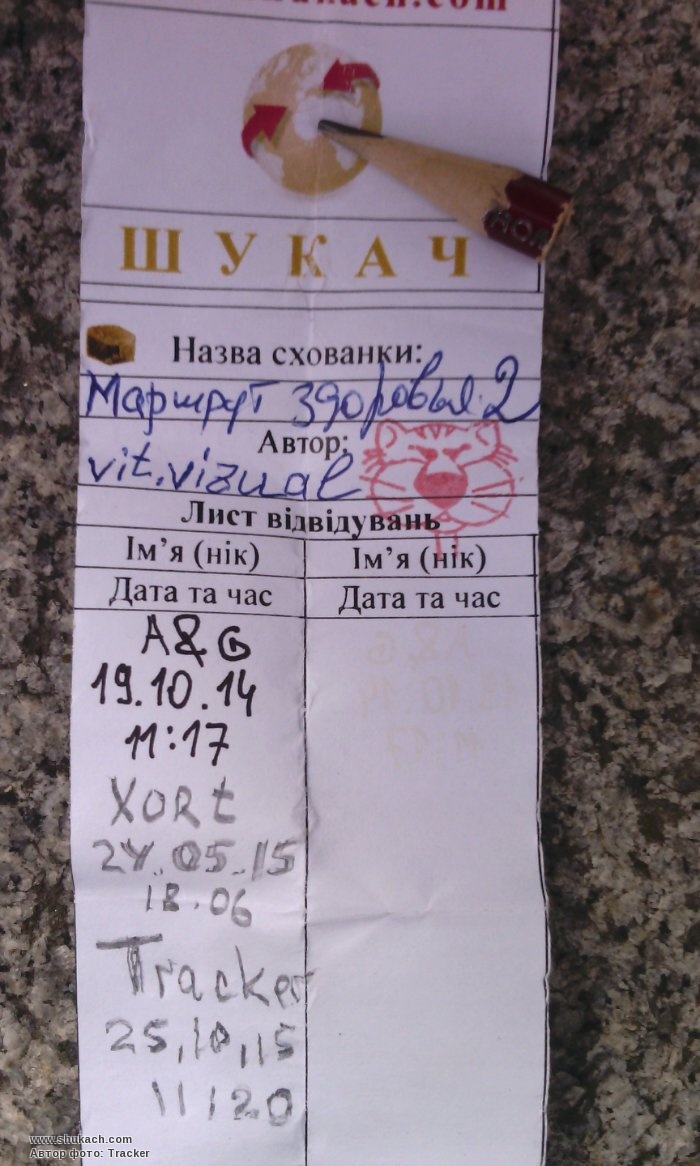 ШУКАЧ
Назва схованки:
Маршрут здоровья 2
Автор:
vit.vizual
Лист відвідувань
Ім’я (нік) Ім’я (нік)
Дата та час Дата та час
A&G
19.10.14
11:17
XORt
24.05.15
18.06
Tracker
25,10,15
11:20
www.shukach.com
Автор фото: Tracker